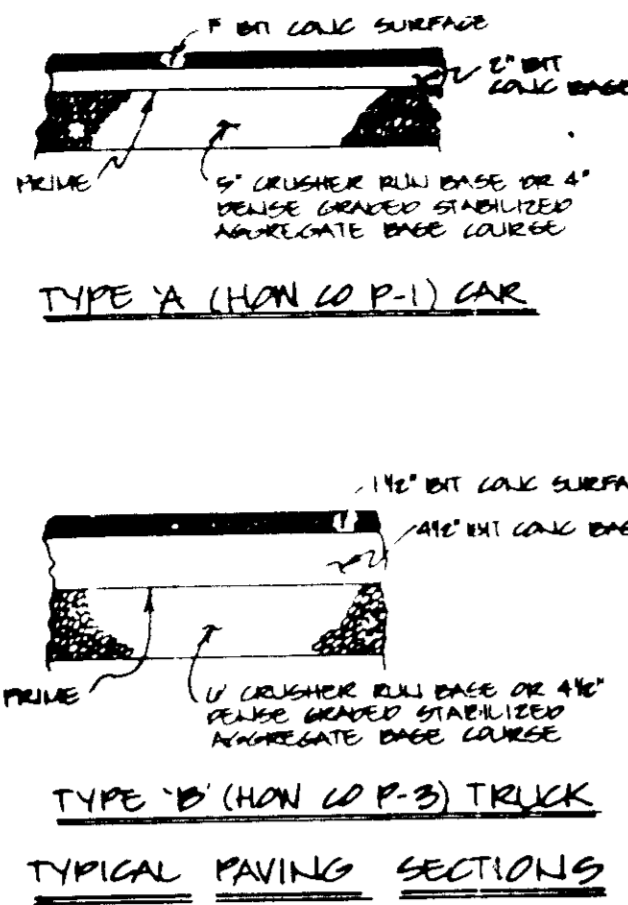 1" BIT CONC SURFACE
2" BIT
CONC BASE
PRIME
5" CRUSHER RUN BASE OR 4"
DENSE GRADED STABILIZED
AGGREGATE BASE COURSE
TYPE 'A (HOW CO P-1) CAR
1 1/2" BIT CONC SURFA
4 1/2" BIT CONC BAS
PRIME
6" CRUSHER RUN BASE OR 4 1/2"
DENSE GRADED STABILIZED
AGGREGATE BASE COURSE
TYPE 'B' (HOW CO P-3) TRUCK
TYPICAL PAVING SECTIONS